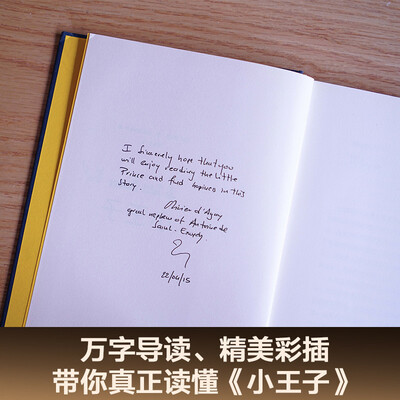 I sincerely hope that you
will enjoy reading the little
Prince and find hapines in this
story.
Olivier d'Agay
great nephew of Antoine de
Saint. Exupéry
22/04/15
万字导读、精美彩插
带你真正读懂《小王子》